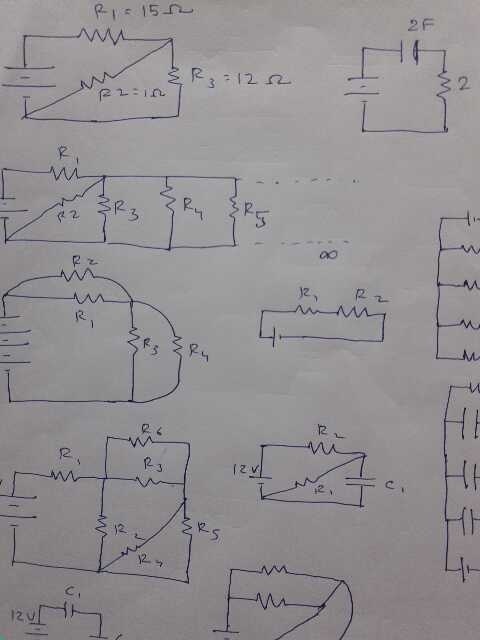 R1 = 15Ω
R2 = 1Ω
R3 = 12Ω
2F
2
R1
R2
R3
R4
R5
∞
R2
R1
R3
R4
R1
R2
R6
R1
R3
R2
R4
R5
R2
12V
R1
C1
C1
12V